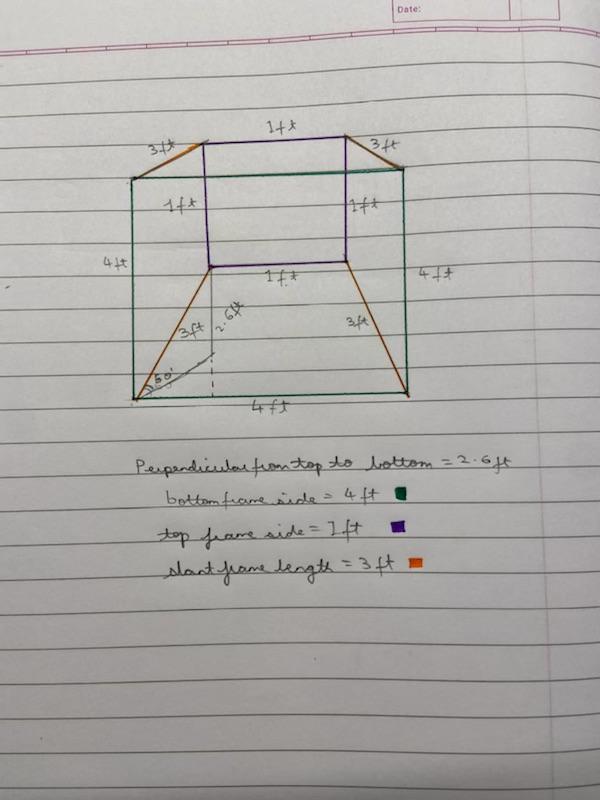 Date:
1ft
3ft
3ft
1ft
1ft
4ft
4ft
1ft
2.6ft
3ft
3ft
50°
4ft
Perpendicular from top to bottom = 2.6ft
bottom frame side = 4ft
top frame side = 1ft
slant frame length = 3ft